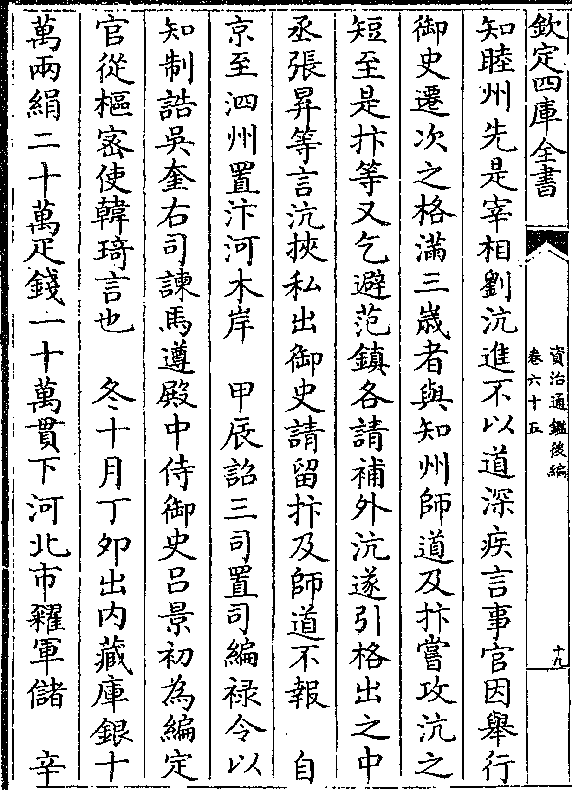 欽定四庫全書
資治通鑑後編
卷六十五
十九
知睦州先是宰相劉沆進不以道深疾言事官因舉行
御史遷次之格滿三歳者與知州師道及抃嘗攻沆之
短至是抃等又乞避范鎮各請補外沆遂引格出之中
丞張昇等言沆挾私出御史請留抃及師道不報　自
京至泗州置汴河木岸　甲辰詔三司置司編禄令以
知制誥吳奎右司諫馬遵殿中侍御史吕景初為編定
官從樞密使韓琦言也　冬十月丁夘出内藏庫銀十
萬兩絹二十萬疋錢一十萬貫下河北市糴軍儲　辛